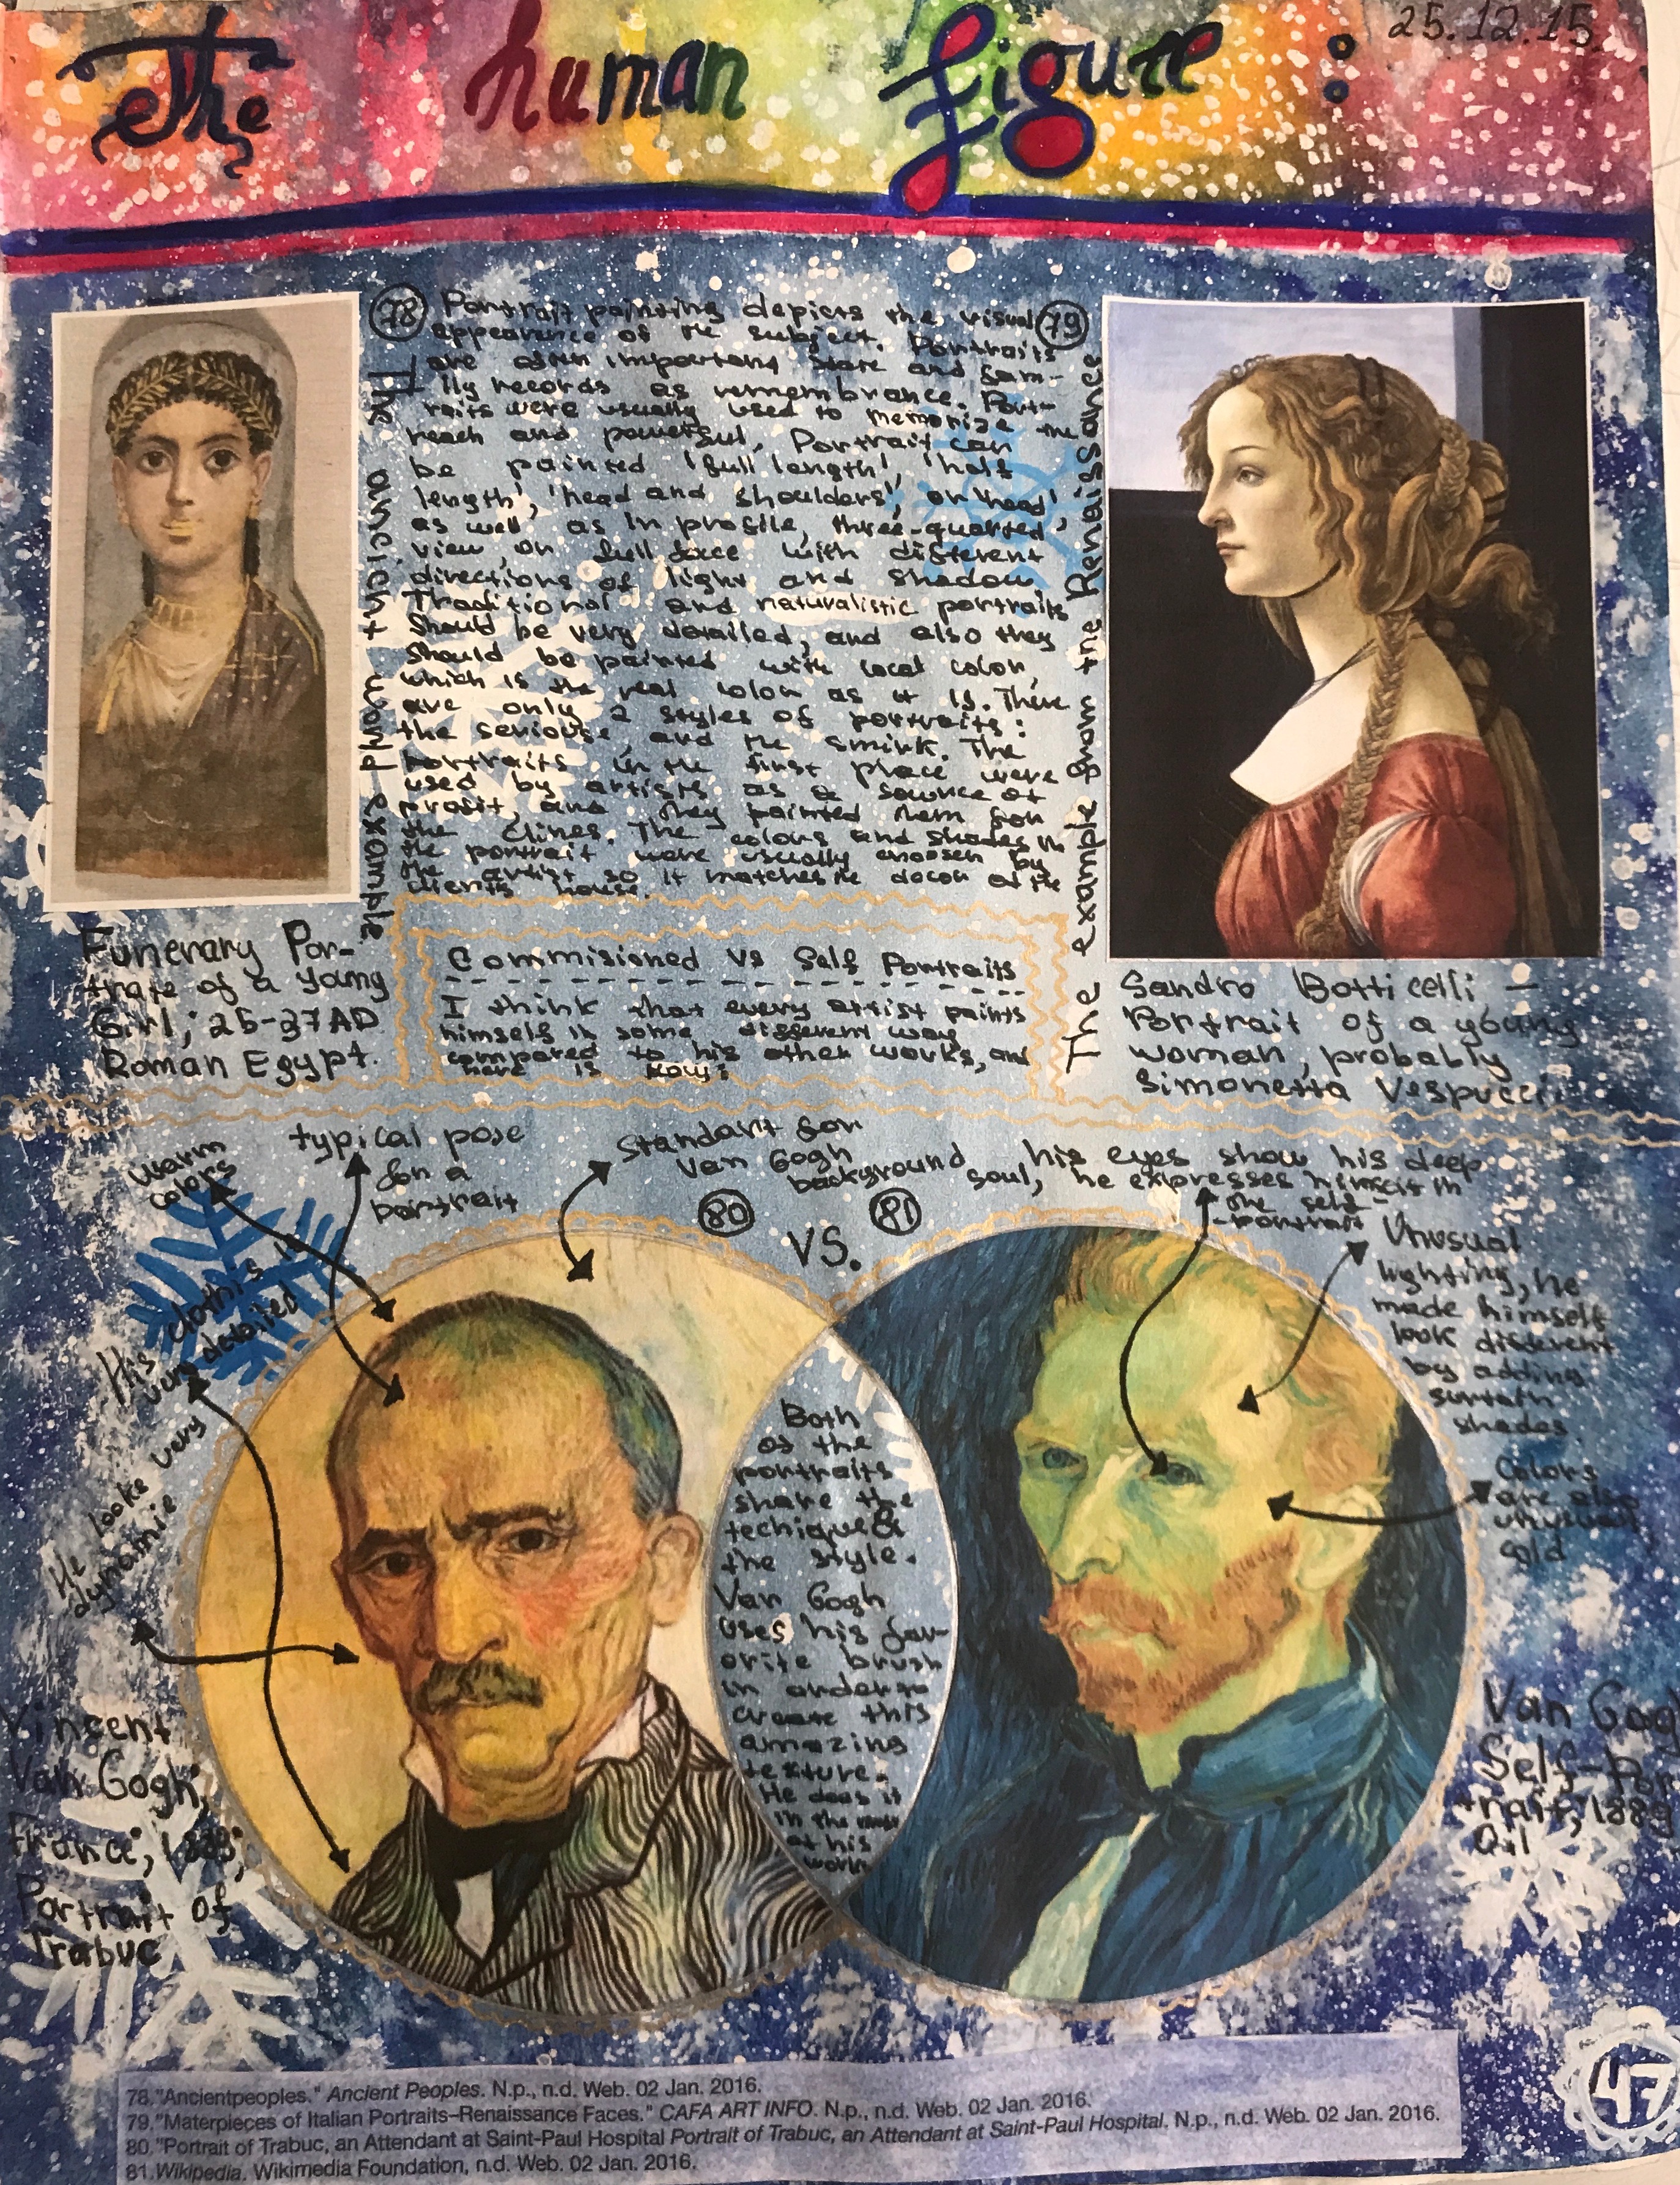 The human figure :
25.12.15.
78
79
Portrait painting depicts the visual
appearance of the subject. Portraits
are often important state and fam-
ily records as remembrance. Port-
raits were usually used to memorize the
reach and powerful. Portrait can
be painted 'full length', 'half
length', 'head and shoulders', or 'head'
as well as in profile, three-quarted
view, or full face with different
directions of light and shadow
Traditional and naturalistic portraits
Should be very detailed, and also they
should be painted with local color,
which is the real color as it is. There
are only 2 styles of portraits:
the seriouse, and the smirk. The
portraits in the first place were
used by artists as a source of
profit, and they painted them for
the clines. The colors and shades in
the portrait were usually choosen by
the artist so it matches the decor of the
clients house.
The ancient rhome example
The example from the Renaissance
Funerary Por-
trate of a young
Girl; 25-37AD
Roman Egypt.
Commisioned vs Self Portraits
I think that every artist paints
himself in some different way
compared to his other works, and
here is how:
Sandro Botticelli -
Portrait of a young
woman, probably
Simonetta Vespucci
warm
colors
typical pose
for a
portrait
Standart for
Van Gogh
background
his eyes show his deep
soul, he expresses himself in
the self-
-portrait
80
vs.
81
Unusual
lighting, he
made himself
look different
by adding
shades.
His clothis is
very detailed
He looke very
dynamic
Colors
are also
unusual
Both
of the
portraits
share the
techique &
the style.
Van Gogh
uses his fav-
orite brush
in order to
create this
amazing
texture.
He does it
in the most
of his
works
Vincent
Van Gogh,
France;
Portrait of
Trabuc
Van Gog
Self-Por
trait, 1889
Oil
47
78."Ancientpeoples." Ancient Peoples. N.p., n.d. Web. 02 Jan. 2016.
79."Materpieces of Italian Portraits–Renaissance Faces." CAFA ART INFO. N.p., n.d. Web. 02 Jan. 2016.
80."Portrait of Trabuc, an Attendant at Saint-Paul Hospital Portrait of Trabuc, an Attendant at Saint-Paul Hospital. N.p., n.d. Web. 02 Jan. 2016.
81.Wikipedia. Wikimedia Foundation, n.d. Web. 02 Jan. 2016.